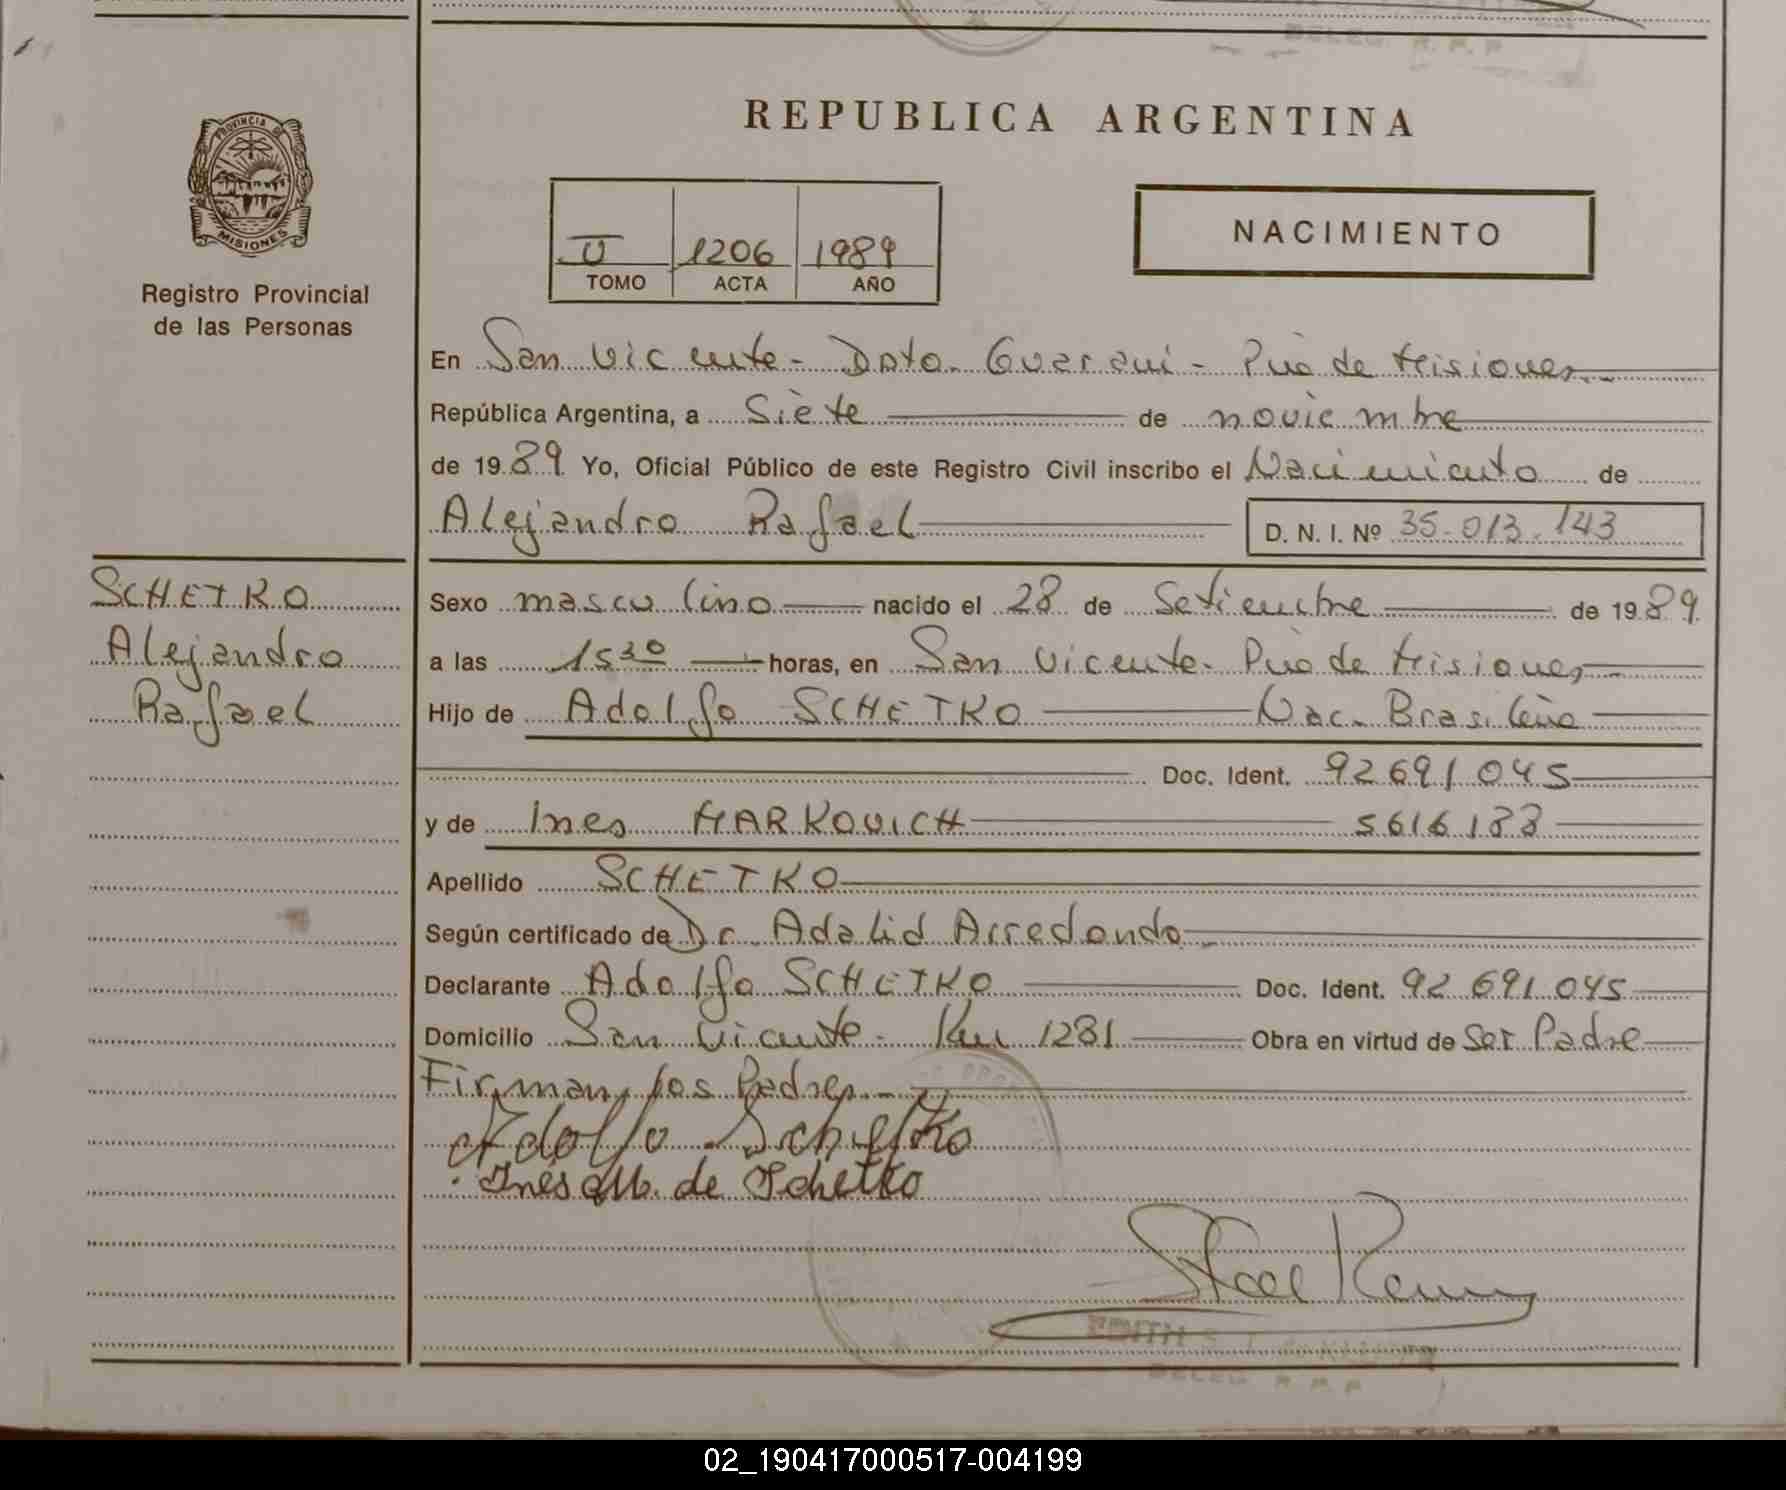 REPUBLICA ARGENTINA
PROVINCIA DE
MISIONES
Registro Provincial
de las Personas
1206 1989
TOMO ACTA AÑO
NACIMIENTO
En San Vicente - Dpto. Guaraní - Pcia de Misiones
República Argentina, a Siete de noviembre
de 1989 Yo, Oficial Público de este Registro Civil inscribo el Nacimiento de
Alejandro Rafael D. N. I. Nº 35.013.143
SCHETKO
Alejandro
Rafael
Sexo masculino nacido el 28 de Setiembre de 1989
a las 15 30 horas, en San Vicente - Pcia de Misiones
Hijo de Adolfo SCHETKO Nac. Brasileña
Doc. Ident. 92691045
y de Ines MARKOVICH 5616183
Apellido SCHETKO
Según certificado de Dr. Adalid Arredondo
Declarante Adolfo SCHETKO Doc. Ident. 92 691 045
Domicilio San Vicente - Km 1281 Obra en virtud de Ser Padre
Firman los Padres.-
Adolfo Schetko
Inés M. de Schetko
EDITH S.
DELEG. R. P. P.
02_190417000517-004199